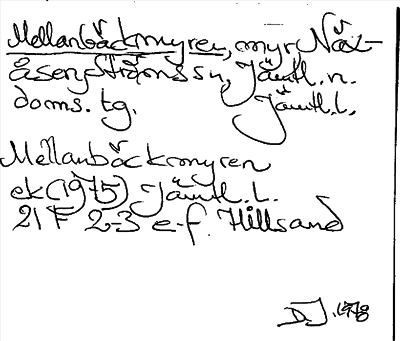 Mellanbäckmyren, myr, Näx-
åsen, Ströms sn, Jämtl. n.
doms. tg. Jämtl. l.
Mellanbäckmyren
ek (1975) Jämtl. l.
21F 2-3 e-f. Hillsand
D.J. 1978